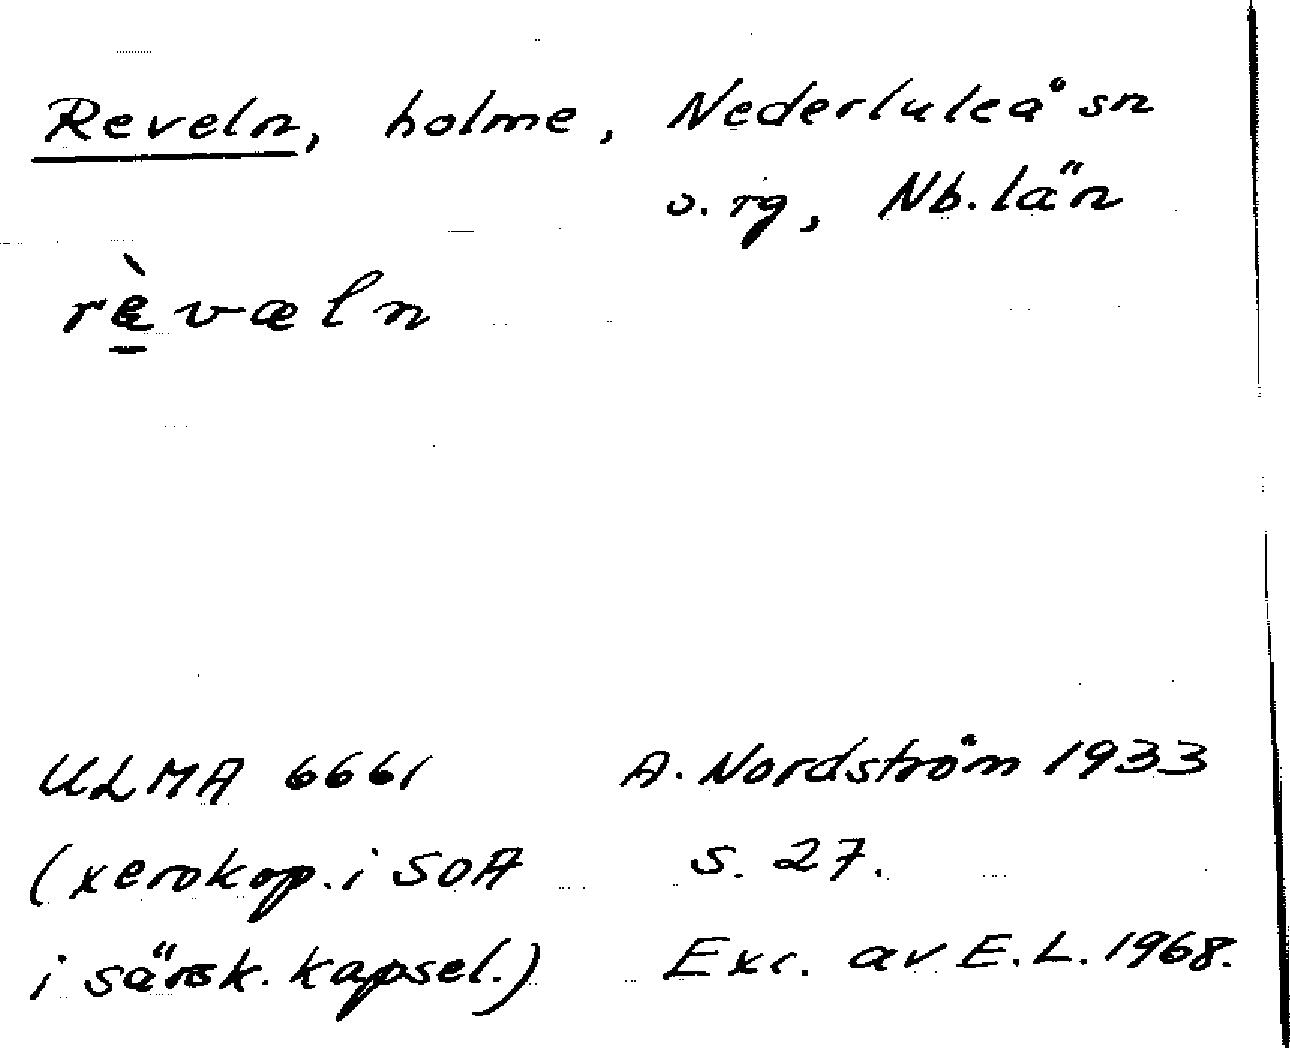 Reveln, holme, Nederluleå sn
o. rg, Nb. län
rè̱væln
ULMA 6661 A. Nordström 1933
(xerokop. i SOA s. 27.
i särsk. kapsel.) Exc. av E. L. 1968.